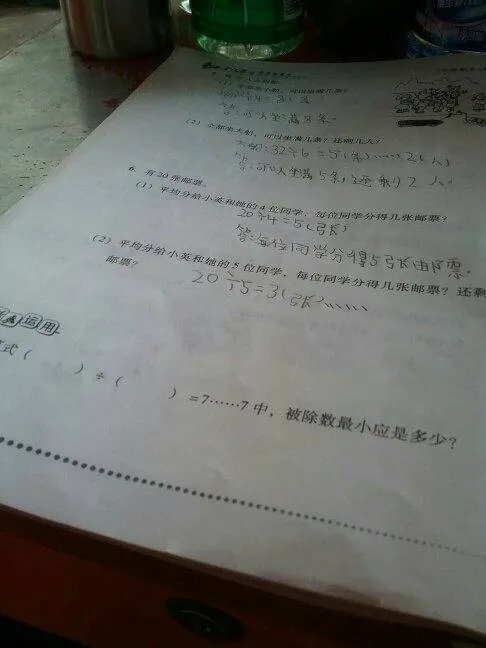 全部坐小船，可以坐满几条？
(2) 全部坐大船，可以坐满几条？还剩几人？
大船：32÷6=5(条)……2(人)
答：可以坐满5条，还剩2人。
6. 有20张邮票。
(1) 平均分给小英和她的4位同学，每位同学分得几张邮票？
20÷4=5(张)
答：每位同学分得5张邮票。
(2) 平均分给小英和她的5位同学，每位同学分得几张邮票？还剩
邮票？
20÷5=3(张)……
运用
式（ ）÷（ ）=7……7中，被除数最小应是多少？